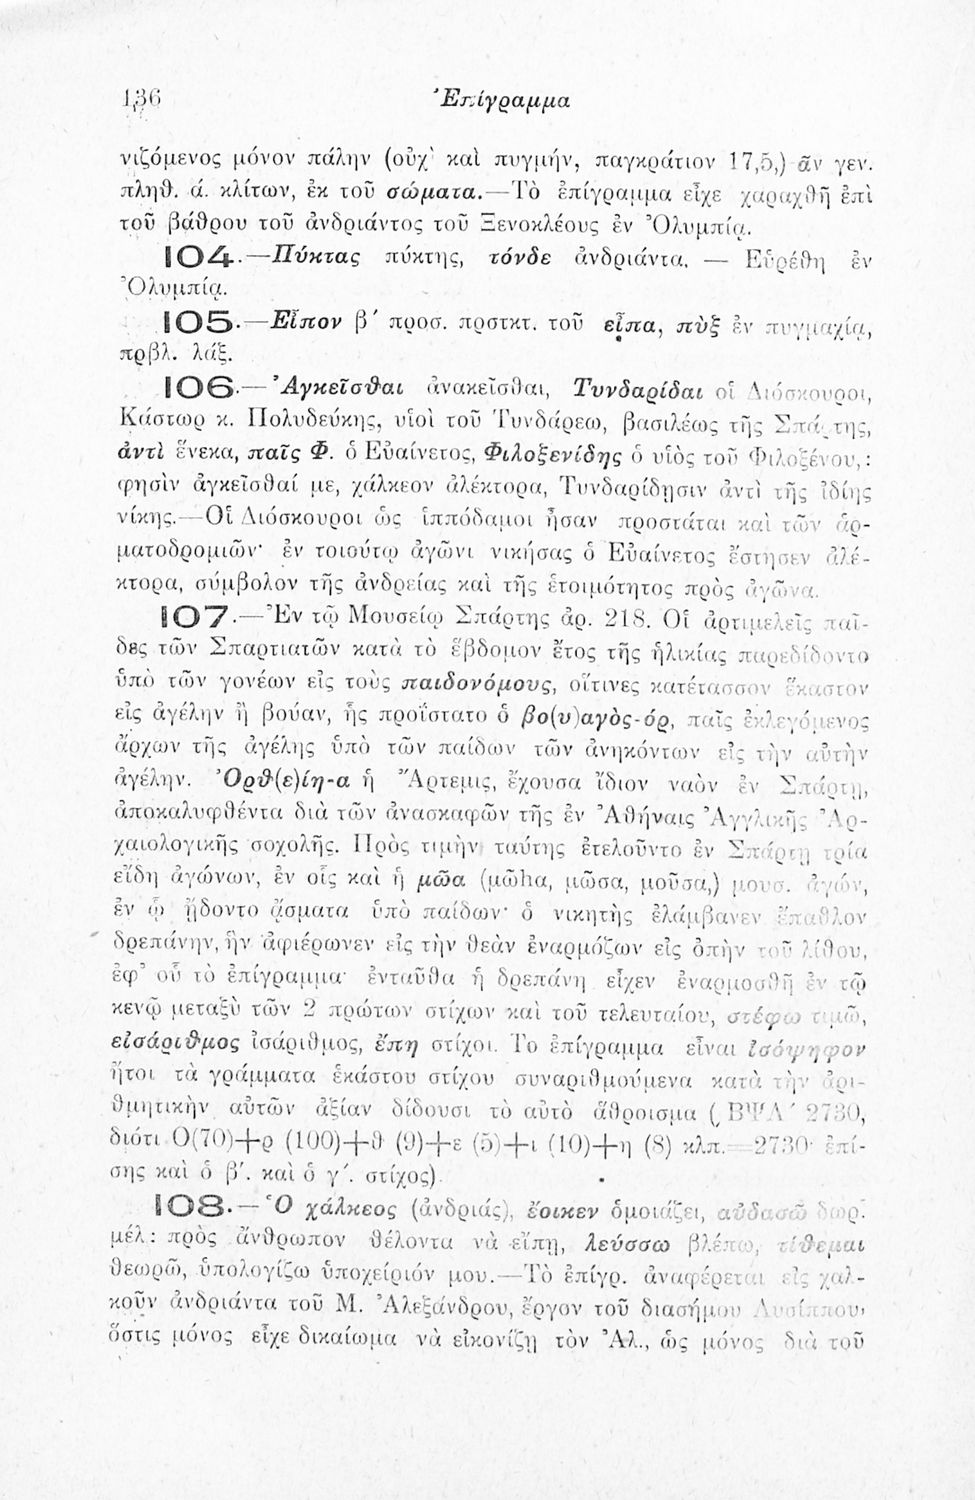 136 Ἐπίγραμμα
νιζόμενος μόνον πάλην (οὐχ' καὶ πυγμήν, παγκράτιον 17,5,) ἂν γεν.
πληθ. ά. κλίτων, ἐκ τοῦ σώματα.—Τὸ ἐπίγραμμα εἶχε χαραχθῆ ἐπὶ
τοῦ βάθρου τοῦ ἀνδριάντος τοῦ Ξενοκλέους ἐν Ὀλυμπίᾳ.
104.—Πύκτας πύκτης, τόνδε ἀνδριάντα. — Εὑρέθη ἐν
Ὀλυμπίᾳ.
105.—Εἶπον β′ προσ. προστκτ. τοῦ εἶπα, πὺξ ἐν πυγμαχίᾳ,
πρβλ. λάξ.
106.— Ἀγκεῖσθαι ἀνακεῖσθαι, Τυνδαρίδαι οἱ Διόσκουροι,
Κάστωρ κ. Πολυδεύκης, υἱοὶ τοῦ Τυνδάρεω, βασιλέως τῆς Σπάρτης,
ἀντὶ ἕνεκα, παῖς Φ. ὁ Εὐαίνετος, Φιλοξενίδης ὁ υἱὸς τοῦ Φιλοξένου,:
φησὶν ἀγκεῖσθαί με, χάλκεον ἀλέκτορα, Τυνδαρίδῃσιν ἀντὶ τῆς ἰδίης
νίκης.—Οἱ Διόσκουροι ὡς ἱππόδαμοι ἦσαν προστάται καὶ τῶν ἁρ-
ματοδρομιῶν· ἐν τοιούτῳ ἀγῶνι νικήσας ὁ Εὐαίνετος ἔστησεν ἀλέ-
κτορα, σύμβολον τῆς ἀνδρείας καὶ τῆς ἑτοιμότητος πρὸς ἀγῶνα.
107.—Ἐν τῷ Μουσείῳ Σπάρτης ἀρ. 218. Οἱ ἀρτιμελεῖς παῖ-
δες τῶν Σπαρτιατῶν κατὰ τὸ ἕβδομον ἔτος τῆς ἡλικίας παρεδίδοντο
ὑπὸ τῶν γονέων εἰς τοὺς παιδονόμους, οἵτινες κατέτασσον ἕκαστον
εἰς ἀγέλην ἢ βούαν, ἧς προΐστατο ὁ βο(υ)αγὸς-όρ, παῖς ἐκλεγόμενος
ἄρχων τῆς ἀγέλης ὑπὸ τῶν παίδων τῶν ἀνηκόντων εἰς τὴν αὐτὴν
ἀγέλην. Ὀρθ(ε)ίη-α ἡ Ἄρτεμις, ἔχουσα ἴδιον ναὸν ἐν Σπάρτῃ,
ἀποκαλυφθέντα διὰ τῶν ἀνασκαφῶν τῆς ἐν Ἀθήναις Ἀγγλικῆς Ἀρ-
χαιολογικῆς σοχολῆς. Πρὸς τιμὴν ταύτης ἐτελοῦντο ἐν Σπάρτῃ τρία
εἴδη ἀγώνων, ἐν οἷς καὶ ἡ μῶα (μῶhα, μῶσα, μοῦσα,) μουσ. ἀγών,
ἐν ᾧ ᾔδοντο ᾄσματα ὑπὸ παίδων· ὁ νικητὴς ἐλάμβανεν ἔπαθλον
δρεπάνην, ἣν ἀφιέρωνεν εἰς τὴν θεὰν ἐναρμόζων εἰς ὀπὴν τοῦ λίθου,
ἐφ' οὗ τὸ ἐπίγραμμα· ἐνταῦθα ἡ δρεπάνη εἶχεν ἐναρμοσθῆ ἐν τῷ
κενῷ μεταξὺ τῶν 2 πρώτων στίχων καὶ τοῦ τελευταίου, στέφω τιμῶ,
εἰσάριθμος ἰσάριθμος, ἔπη στίχοι. Το ἐπίγραμμα εἶναι ἰσόψηφον
ἤτοι τὰ γράμματα ἑκάστου στίχου συναριθμούμενα κατὰ τὴν ἀρι-
θμητικὴν αὐτῶν ἀξίαν δίδουσι τὸ αὐτὸ ἄθροισμα (͵ΒΨΛ′ 2730,
διότι Ο(70)+ρ (100)+θ (9)+ε (5)+ι (10)+η (8) κλπ.=2730· ἐπί-
σης καὶ ὁ β′. καὶ ὁ γ′. στίχος).
108.— Ὁ χάλκεος (ἀνδριάς), ἔοικεν ὁμοιάζει, αὐδασῶ δωρ.
μέλ: πρὸς ἄνθρωπον θέλοντα νὰ εἴπῃ, λεύσσω βλέπω, τίθεμαι
θεωρῶ, ὑπολογίζω ὑποχείριόν μου.—Τὸ ἐπίγρ. ἀναφέρεται εἰς χαλ-
κοῦν ἀνδριάντα τοῦ Μ. Ἀλεξάνδρου, ἔργον τοῦ διασήμου Λυσίππου,
ὅστις μόνος εἶχε δικαίωμα νὰ εἰκονίζῃ τὸν Ἀλ., ὡς μόνος διὰ τοῦ